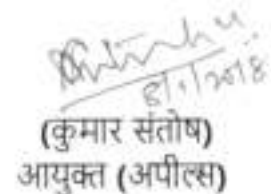 8/1/2018
(कुमार संतोष)
आयुक्त (अपील्स)